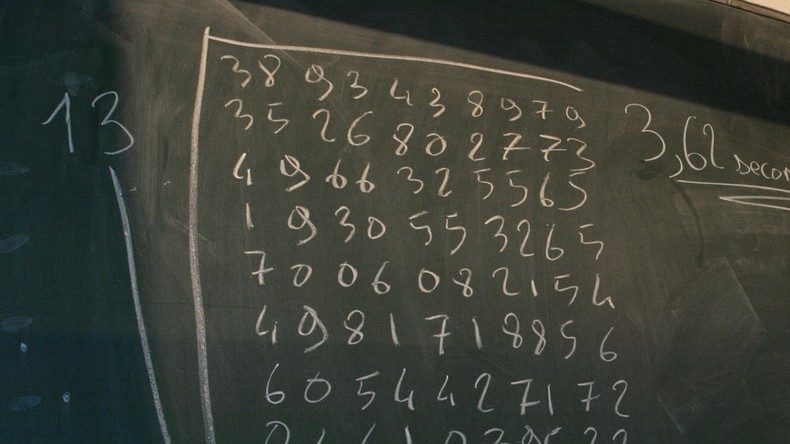 13
38 93 43 89 79
35 26 80 27 73
49 66 32 55 65
19 30 55 32 65
70 06 08 21 54
49 81 71 88 56
60 54 42 71 72
3,62